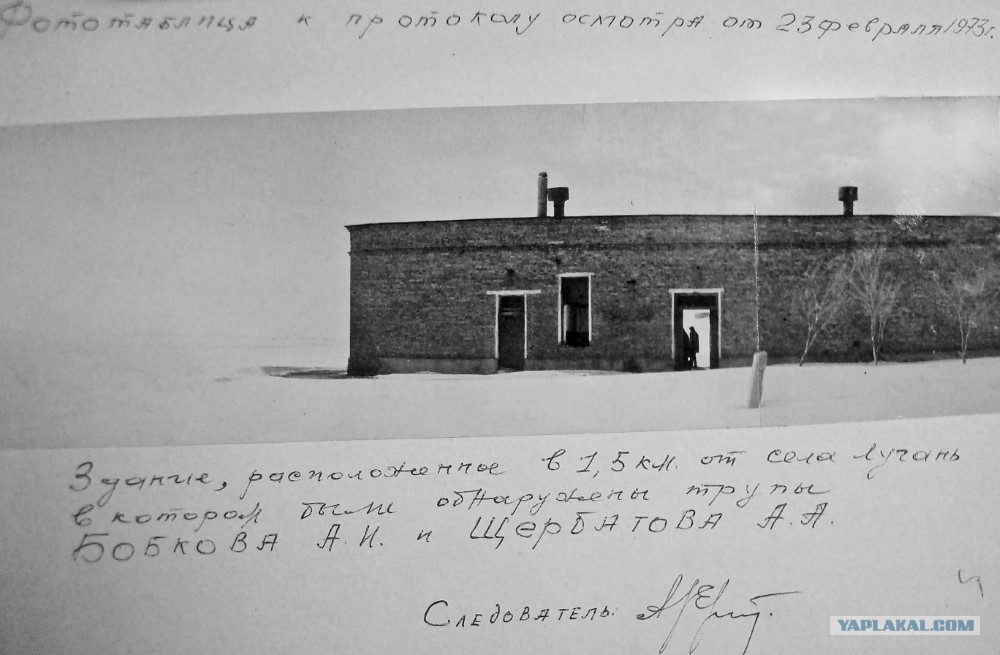 Фототаблица к протоколу осмотра от 23 февраля 1973г.
Здание, расположенное в 1,5 км. от села Лучань
в котором были обнаружены трупы
БОБКОВА А.И. и ЩЕРБАТОВА А.А.
Следователь:
YAPLAKAL.COM